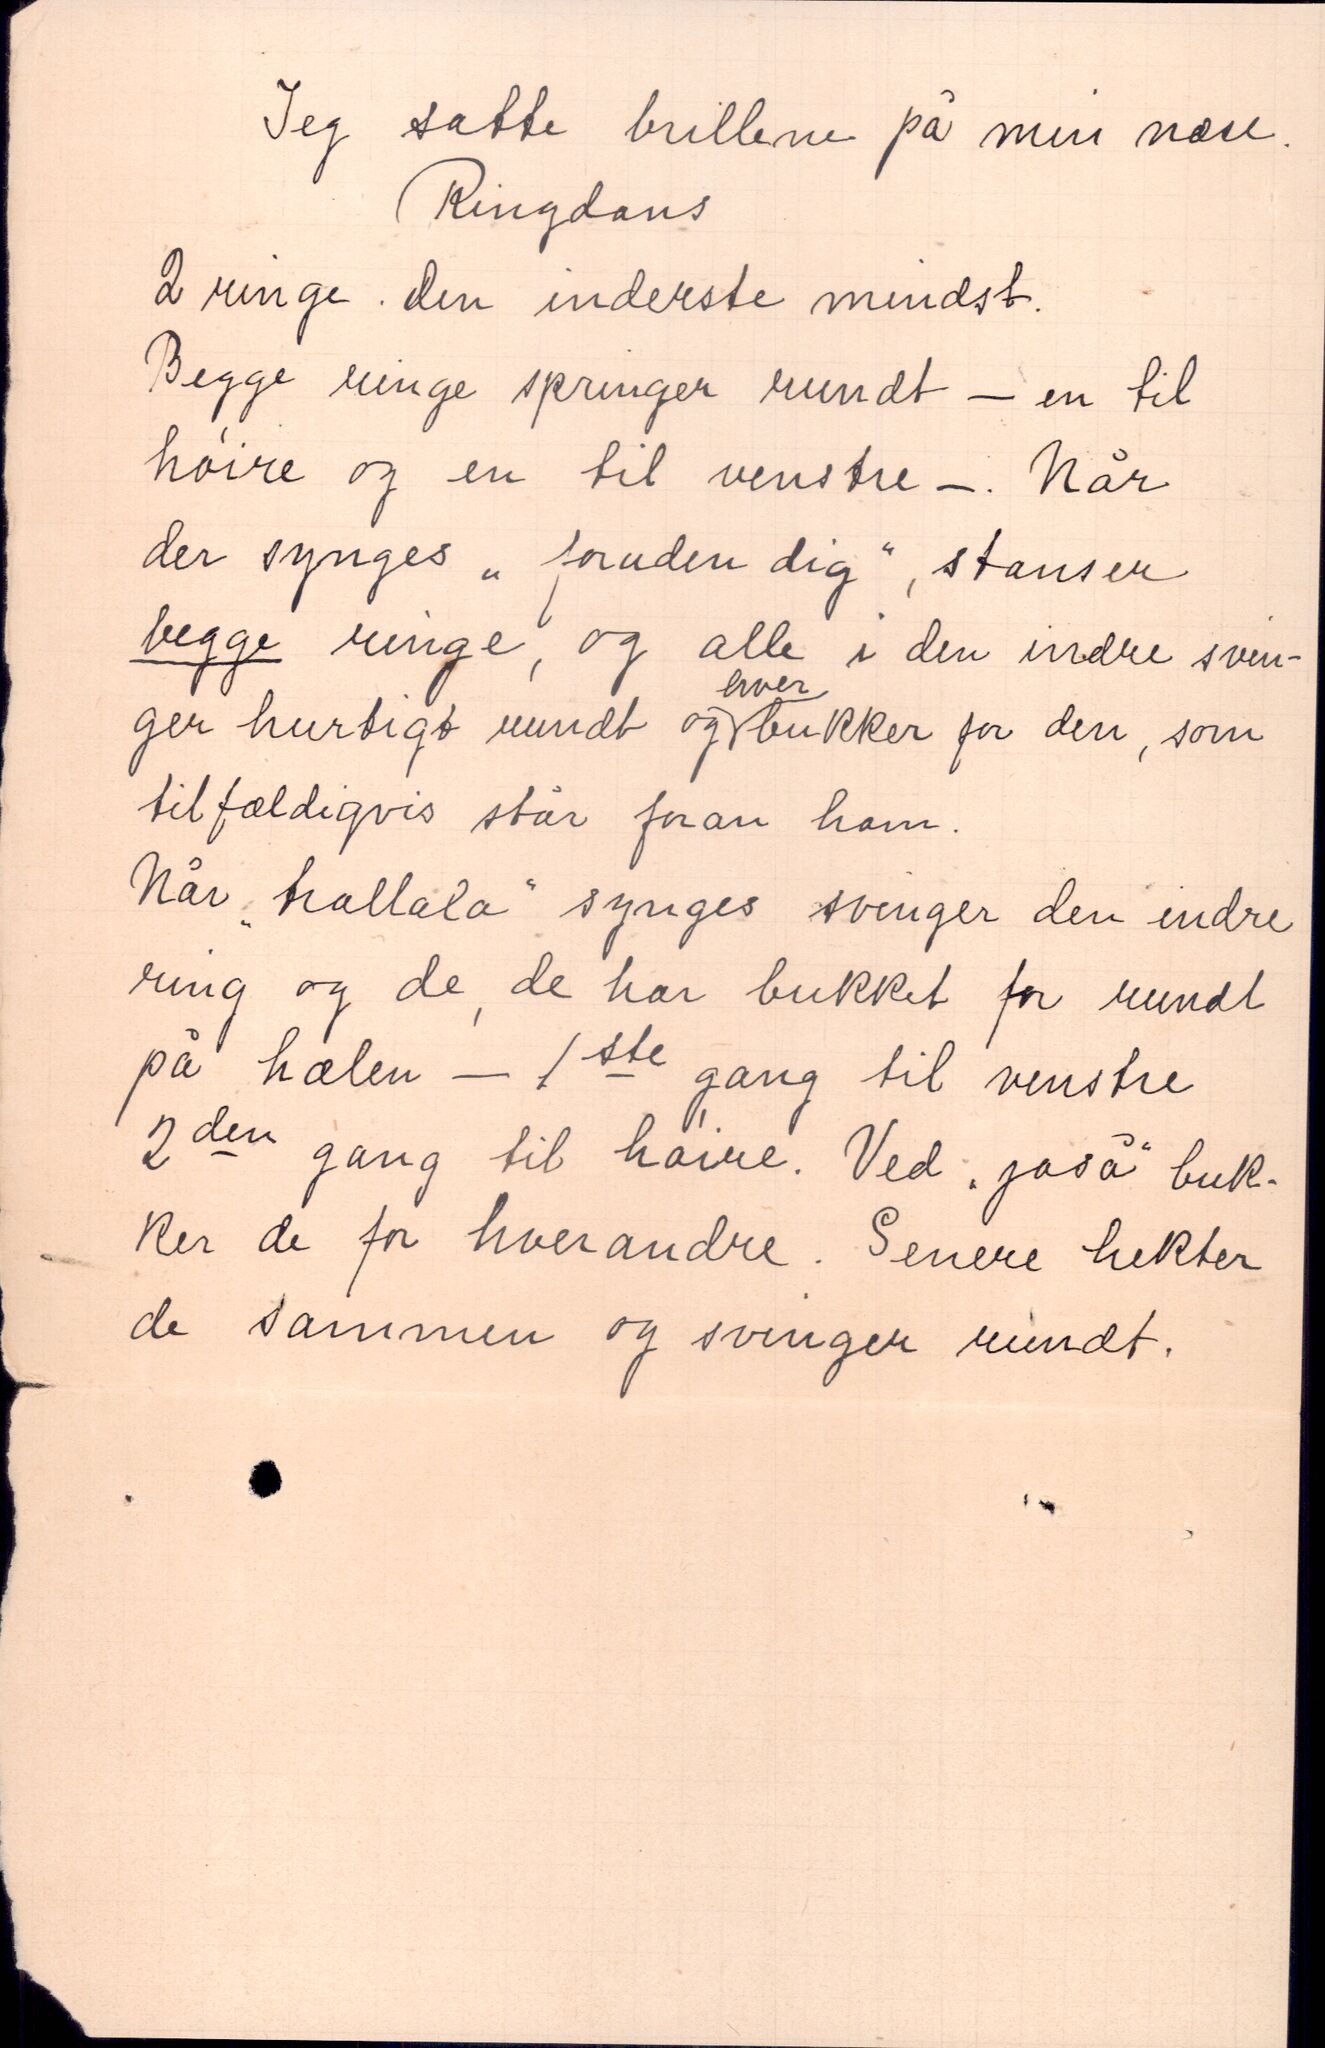 Jeg satte brillene på min næse.
Ringdans
2 ringe. den inderste mindst.
Begge ringe springer rundt — en til
höire og en til venstre —. Når
der synges „foruden dig“, stanser
begge ringe, og alle i den indre svin-
ger hurtigt rundt og hver bukker for den, som
tilfældigvis står foran ham.
Når „trallala“ synges svinger den indre
ring og de, de har bukket for rundt
på hælen — 1ste gang til venstre
2den gang til höire. Ved „joså“ buk-
ker de for hverandre. Senere hekter
de sammen og svinger rundt.